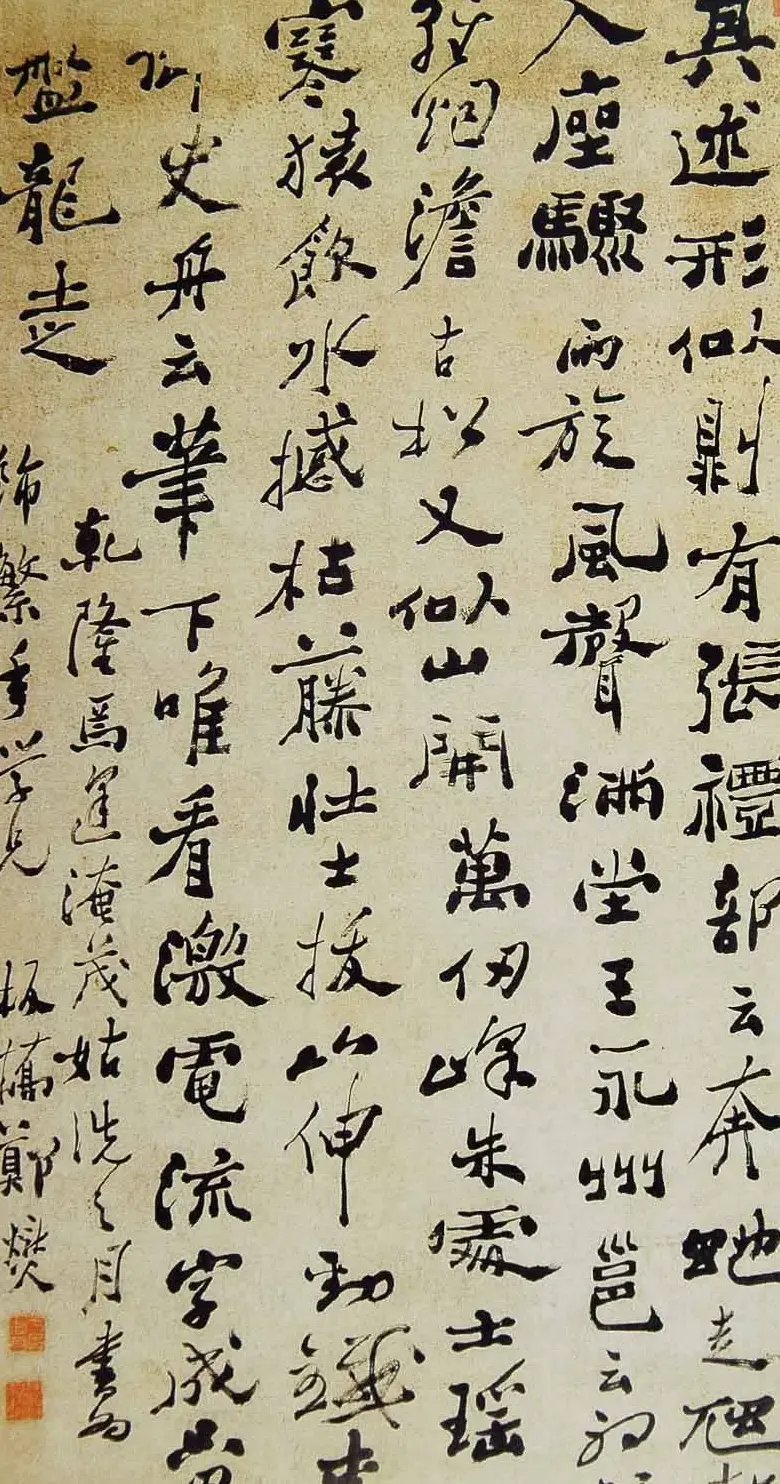 具述形似則有張禮部云奔虵走虺
入座驟雨旋風聲滿堂王永州邕云初
輕烟澹古松又似山開萬仞峰朱處士瑶
寒猿飲水撼枯藤壯士拔山伸勁鐵
御史舟云筆下唯看激電流字成只畏
盤龍走
乾隆焉逢淹茂姑洗之月書為
繁年學兄 板橋鄭燮